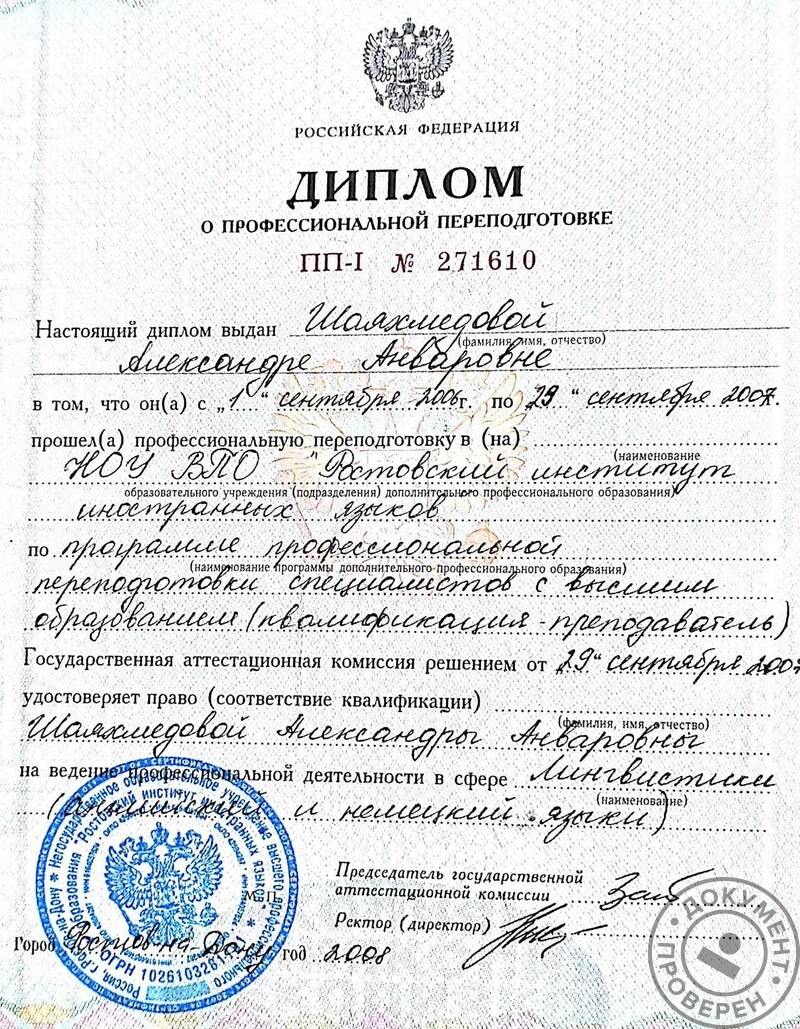 РОССИЙСКАЯ ФЕДЕРАЦИЯ
ДИПЛОМ
О ПРОФЕССИОНАЛЬНОЙ ПЕРЕПОДГОТОВКЕ
ПП-I № 271610
Настоящий диплом выдан Шаяхмедовой
(фамилия, имя, отчество)
Александре Анваровне
в том, что он(а) с „1“ сентября 2006г. по „29“ сентября 2007.
прошел(а) профессиональную переподготовку в (на)
(наименование
НОУ ВПО "Ростовский институт
образовательного учреждения (подразделения) дополнительного профессионального образования)
иностранных языков
по программе профессиональной
(наименование программы дополнительного профессионального образования)
переподготовки специалистов с высшим
образованием (квалификация - преподаватель)
Государственная аттестационная комиссия решением от „29“ сентября 2007
удостоверяет право (соответствие квалификации)
(фамилия, имя, отчество)
Шаяхмедовой Александры Анваровны
на ведение профессиональной деятельности в сфере Лингвистики
(наименование)
(английский и немецкий языки)
Председатель государственной
аттестационной комиссии
М.П.
Ректор (директор)
Город Ростов-на-Дону год 2008
Негосударственное образовательное учреждение высшего профессионального образования
"Ростовский институт иностранных языков"
Россия, г. Ростов-на-Дону
ОГРН
ДОКУМЕНТ
ПРОВЕРЕН